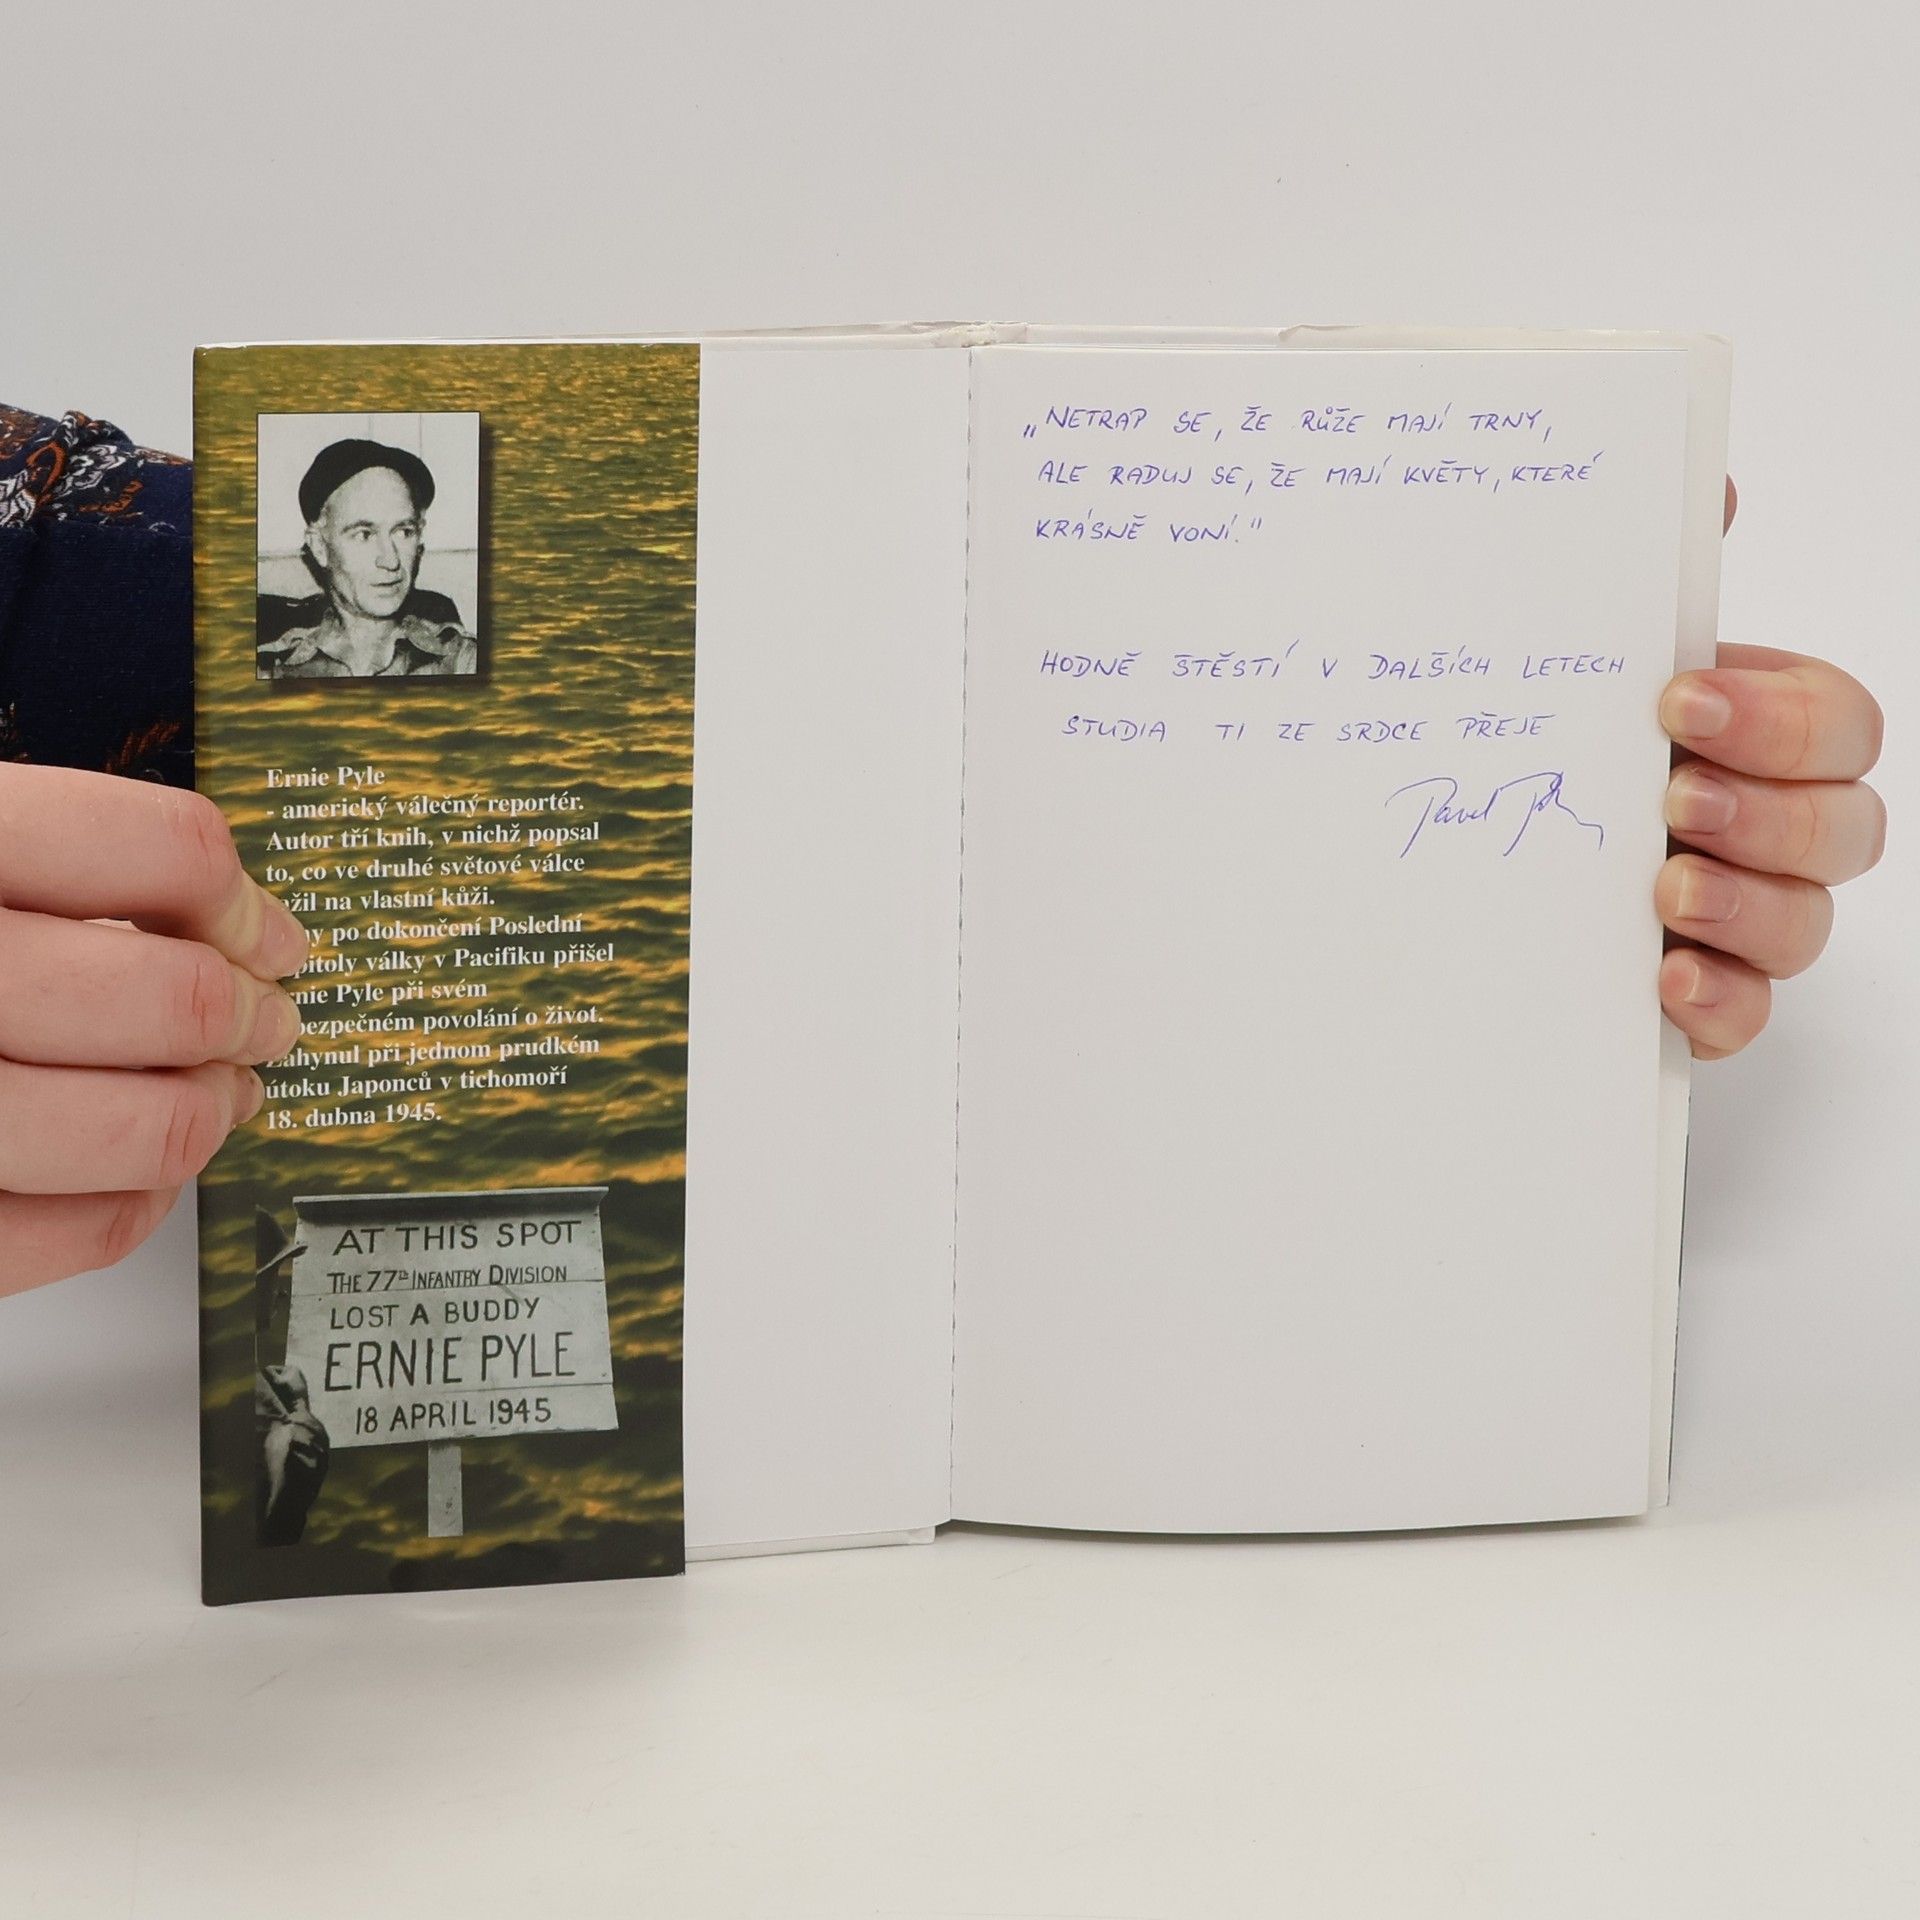 Ernie Pyle
- americký válečný reportér.
Autor tří knih, v nichž popsal
to, co ve druhé světové válce
žil na vlastní kůži.
po dokončení Poslední
války v Pacifiku přišel
Pyle při svém
povolání o život.
Zahynul při jednom prudkém
útoku Japonců v tichomoří
18. dubna 1945.
AT THIS SPOT
THE 77TH INFANTRY DIVISION
LOST A BUDDY
ERNIE PYLE
18 APRIL 1945
„NETRAP SE, ŽE RŮŽE MAJÍ TRNY,
ALE RADUJ SE, ŽE MAJÍ KVĚTY, KTERÉ
KRÁSNĚ VONÍ."
HODNĚ ŠTĚSTÍ V DALŠÍCH LETECH
STUDIA TI ZE SRDCE PŘEJE
Pavel